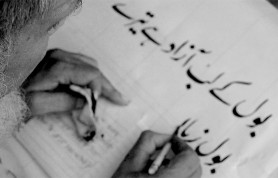 بول کے لب آزاد ہے تیرے
بول زباں